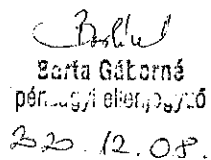 Barta Gáborné
pénzügyi ellenjegyző
2020. 12. 08.